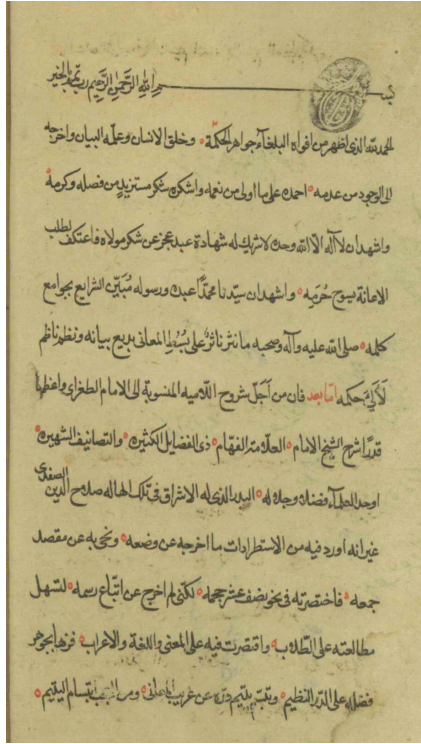 بسم الله الرحمن الرحيم رب تمم بالخير
الحمد لله الذى اظهر من افواه البلغآء جواهر الحكمة وخلق الانسان وعلمه البيان واخرجه
الى الوجود من عدمه احمده على ما اولى من نعمه واشكره شكر مستزيدٍ من فضله وكرمه
واشهد ان لا اله الا الله وحده لا شريك له شهادة عبد عجز عن شكر مولاه فاعتكف لطلب
الاعانة بسوح حُرَمِه واشهد ان سيدنا محمدًا عبده ورسوله مُبَيّن الشرايع بجوامع
كلمه صلى الله عليه وآله وصحبه ما نثر ناثرٌ على بُسُطِ المعانى بديع بيانه ونظم ناظم
لَآلِئَ حكمه اما بعد فان من اَجَلّ شروح اللاميه المنسوبة الى الامام الطغراى واعظمها
قدرًا شرح الشيخ الامام العلامة الفهّام ذى الفضايل الكثيره والتصانيف الشهيره
اوحد العلمآء فضله وجلاله البدر الذى له الاشراق فى تلك الهاله صلاح الدين الصفدى
غير انه اورد فيه من الاستطرادات ما اخرجه عن وضعه ونحى به عن مقصد
جمعه فاختصرته فى نحو نصف عشر حجمه لكنى لم اخرج عن اتباع رسمه لتسهل
مطالعته على الطلاب واقتصرت فيه على المعنى واللغة والاعراب فزها بجوهر
فضله على الدر النظيم وتبسم يتيم درّه عن غريب المعانى ومن العجب ابتسام اليتيم